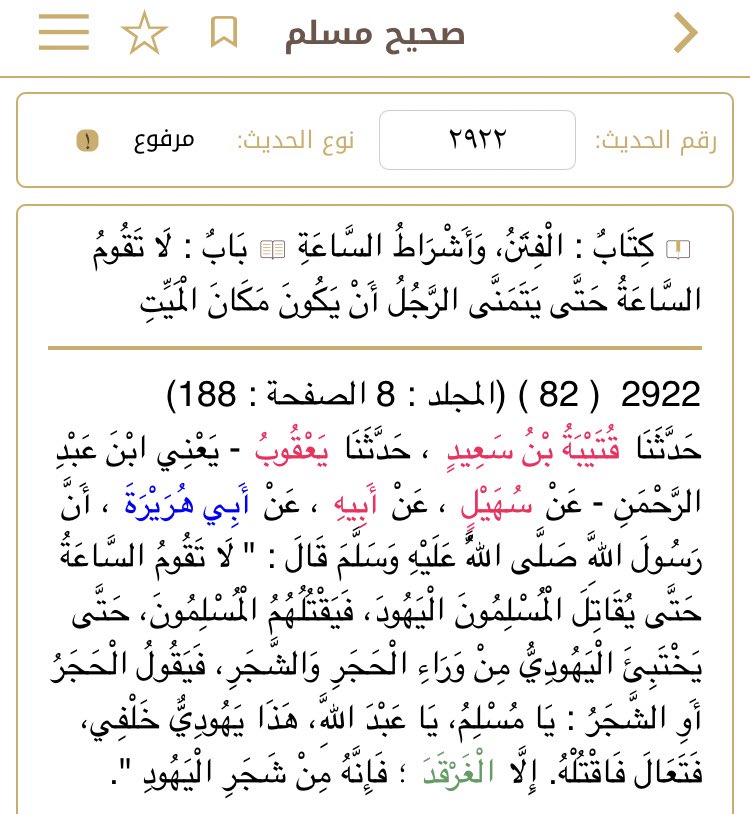 صحيح مسلم
رقم الحديث: ٢٩٢٢ نوع الحديث: مرفوع
كِتَابٌ : الْفِتَنُ، وَأَشْرَاطُ السَّاعَةِ بَابٌ : لَا تَقُومُ
السَّاعَةُ حَتَّى يَتَمَنَّى الرَّجُلُ أَنْ يَكُونَ مَكَانَ الْمَيِّتِ
2922 ( 82 ) (المجلد : 8 الصفحة : 188)
حَدَّثَنَا قُتَيْبَةُ بْنُ سَعِيدٍ ، حَدَّثَنَا يَعْقُوبُ - يَعْنِي ابْنَ عَبْدِ
الرَّحْمَنِ - عَنْ سُهَيْلٍ ، عَنْ أَبِيهِ ، عَنْ أَبِي هُرَيْرَةَ ، أَنَّ
رَسُولَ اللَّهِ صَلَّى اللَّهُ عَلَيْهِ وَسَلَّمَ قَالَ : " لَا تَقُومُ السَّاعَةُ
حَتَّى يُقَاتِلَ الْمُسْلِمُونَ الْيَهُودَ، فَيَقْتُلُهُمُ الْمُسْلِمُونَ، حَتَّى
يَخْتَبِئَ الْيَهُودِيُّ مِنْ وَرَاءِ الْحَجَرِ وَالشَّجَرِ، فَيَقُولُ الْحَجَرُ
أَوِ الشَّجَرُ : يَا مُسْلِمُ، يَا عَبْدَ اللَّهِ، هَذَا يَهُودِيٌّ خَلْفِي،
فَتَعَالَ فَاقْتُلْهُ. إِلَّا الْغَرْقَدَ ؛ فَإِنَّهُ مِنْ شَجَرِ الْيَهُودِ ".